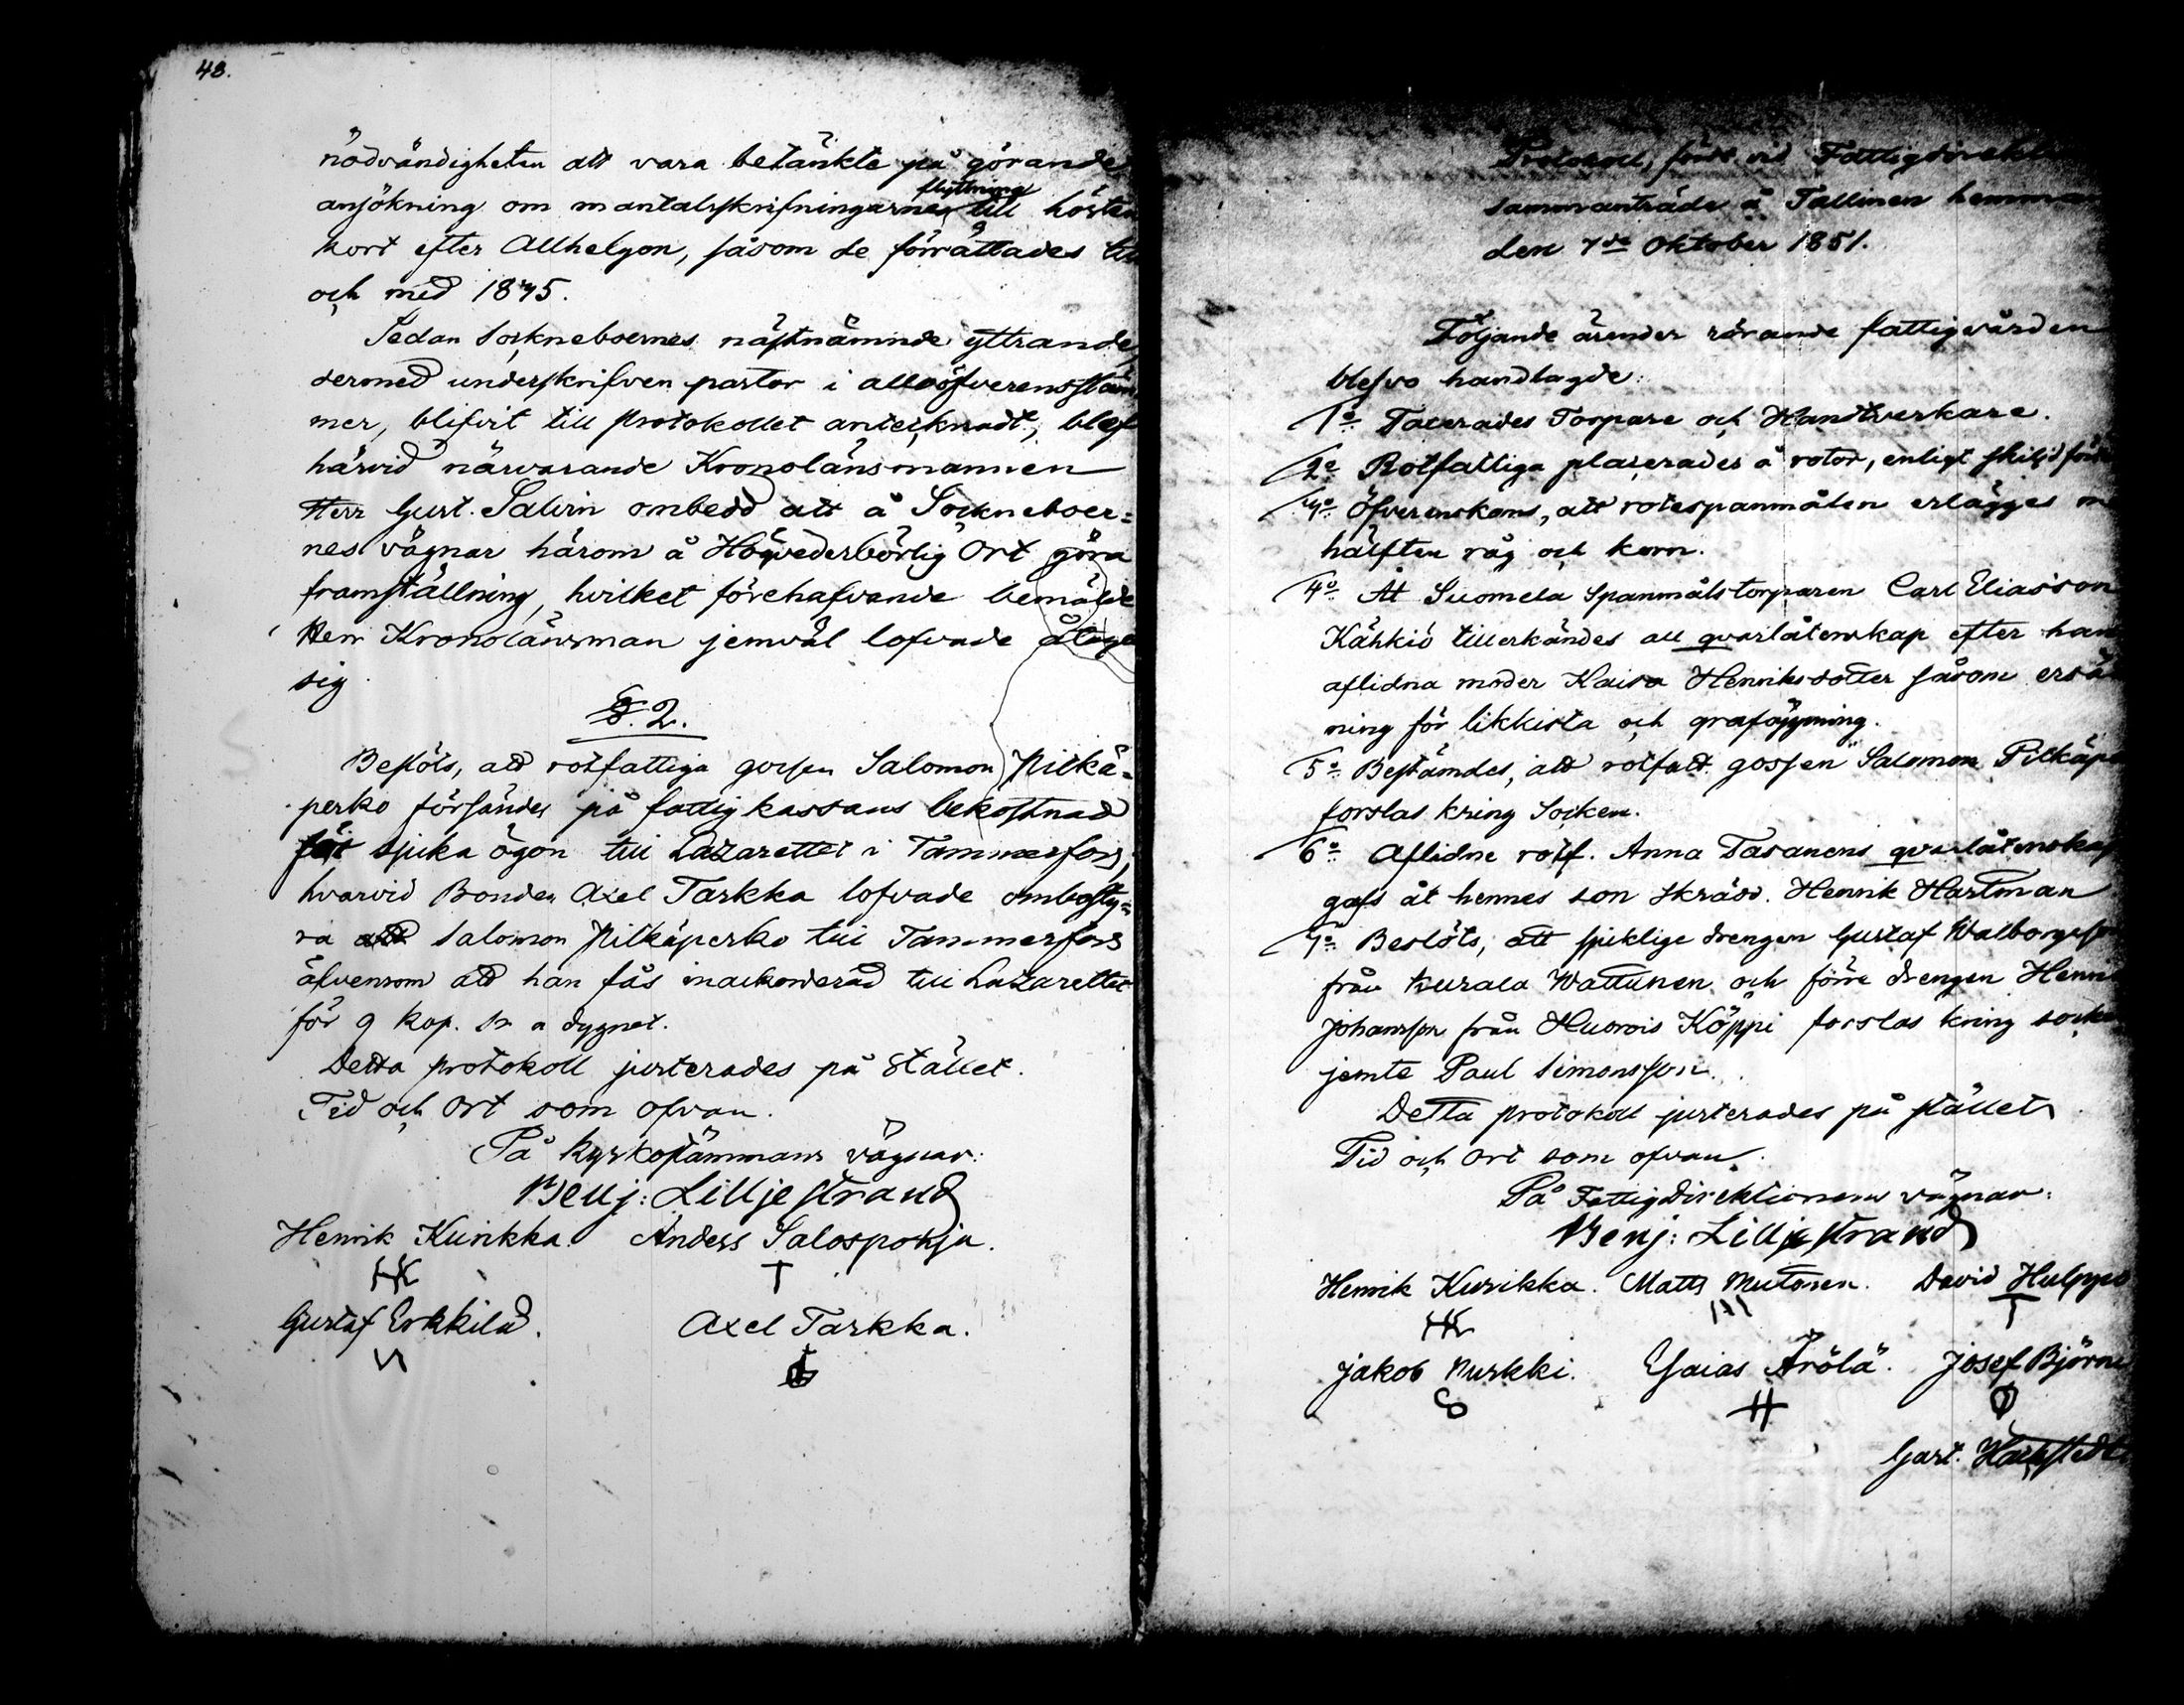 48.
nödvändigheten att vara betänkte på görande
ansökning om mantalsskrifningarnes flyttning till hösten
kort efter Allhelgon, såsom de förrättades till
och med 1845.
Sedan Sockneboernes nästnämnde yttrande,
dermed underskrifven pastor i allo öfverensstäm
mer, blifvit till protokollet antecknadt, blef
härvid närvarande Kronolänsmannen
Herr Gust. Salvin ombedd att å Sockneboer=
nes vägnar härom å Högvederbörlig Ort göra
framställning, hvilket förehafvande bemälde
Herr Kronolänsman jemväl lofvade åtaga
sig.
§. 2.
Beslöts, att rotfattiga gossen Salomon Pilkä=
perko försändes på fattigkassans bekostnad
för sjuka ögon till Lazarettet i Tammerfors,
hvarvid Bonden Axel Tarkka lofvade ombesty=
ra Salomon Pilkäperko till Tammerfors
äfvensom att han fås inackorderad till Lazarettet
för 9 kop. Sr a dygnet.
Detta protokoll justerades på stället.
Tid och Ort som ofvan.
På kyrkostämmans vägnar:
Benj: Lilljestrand
Henrik Kurikka. Anders Salospohja.
HK T
Gustaf Erkkilä. Axel Tarkka.
Protokoll, fördt vid Fattigdirekt
sammanträde å Tallinen hemma
den 7de Oktober 1851.
Följande ärender rörande fattigvården
blefvo handlagde:
1o Taxerades Torpare och Handtverkare.
2o Rotfattiga placerades å rotor, enligt skild för
3o Öfverenskoms, att rotespanmålen erlägges m
hälften råg och korn.
4o Åt Suomela Spanmålstorparen Carl Eliasson
Kähkiö tillerkändes all qvarlåtenskap efter han
aflidna moder Kaisa Henriksdotter såsom ersä
ning för likkista och graföppning.
5o Bestämdes, att rotfatt. gossen Salomon Pilkäpe
forslas kring Socken.
6o Aflidne rotf. Anna Tasanens qvarlåtenskap
gafs åt hennes son skrädd. Henrik Hartman
7o Beslöts, att sjuklige drengen Gustaf Walborgss
från Kurala Wattunen och förre drengen Henri
Johansson från Huovois Köppi forslas kring sock
jemte Paul Simonsson.
Detta protokoll justerades på stället
Tid och Ort som ofvan.
På Fattigdirektionens vägnar:
Benj: Lilljestrand
Henrik Kurikka. Matts Mutonen. David Hulppo
HK
Jakob Nurkki. Esaias Ärölä. Josef Björni
Gust.